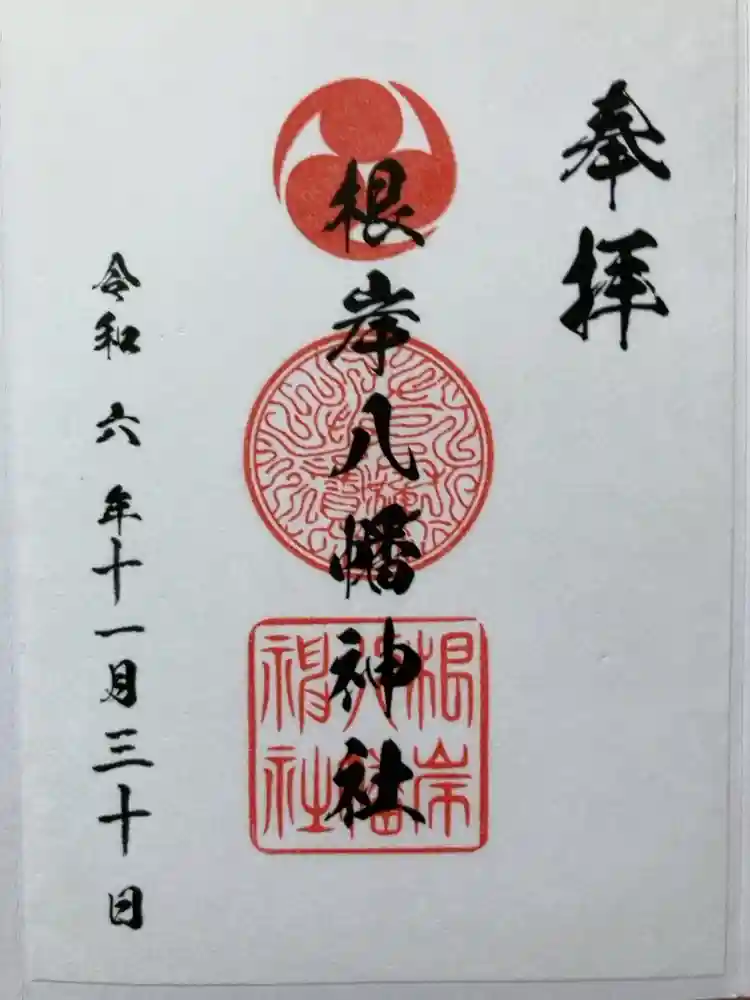 奉拝
根岸八幡神社
根岸
八幡
神社
令和六年十一月三十日